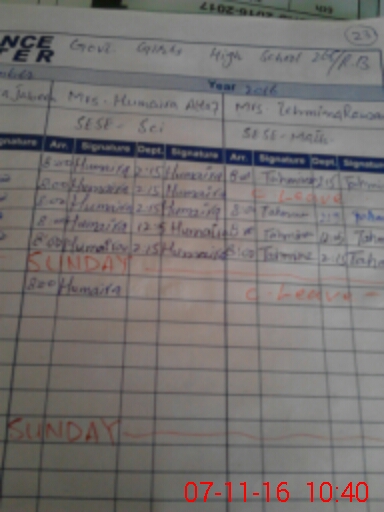 2016-2017
23
NCE
TER
Govt. Girls High School 266/R.B
Year 2016
Mrs. Humaira
Mrs.
SESE - Sci
SESE - Math
gnature Arr. Signature Dept. Signature Arr. Signature Dept. Signature
8.00 Humaira 2.15 Humaira 8.00 Tahmina 2.15
8.00 Humaira 2.15 Humaira C. Leave
8.00 Humaira 2.15 Humaira 8.00 Tahmina
8.00 Humaira 12.15 Humaira 8.00 Tahmina 12.15
8.00 Humaira 2.15 Humaira 8.00 Tahmina 2.15
SUNDAY
8.00 Humaira C. Leave
SUNDAY
07-11-16 10:40